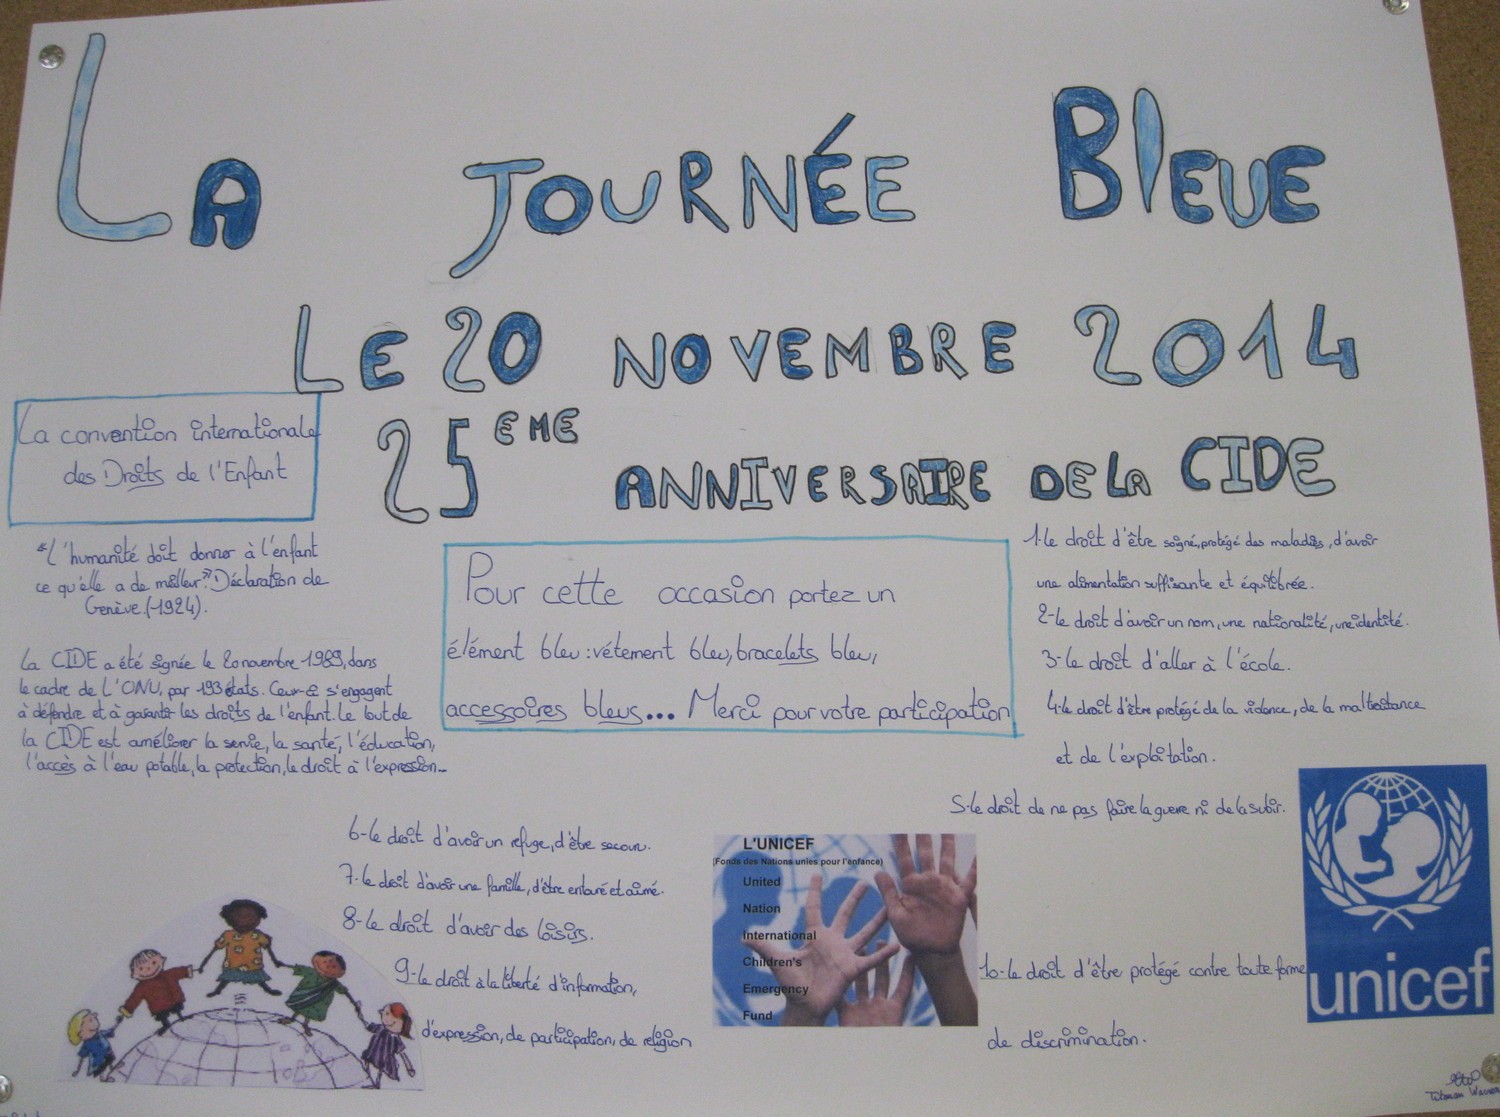 La Journée Bleue
Le 20 Novembre 2014
25ème anniversaire de la CIDE
La convention internationale
des Droits de l'Enfant
"L'humanité doit donner à l'enfant
ce qu'elle a de meilleur". Déclaration de
Genève.(1924).
La CIDE a été signée le 20 novembre 1989, dans
le cadre de l'ONU, par 193 états. Ceux-ci s'engagent
à défendre et à garantir les droits de l'enfant. Le but de
la CIDE est améliorer la survie, la santé, l'éducation,
l'accès à l'eau potable, la protection, le droit à l'expression...
Pour cette occasion portez un
élément bleu : vétement bleu, bracelets bleu,
accessoires bleus... Merci pour votre participation
1-le droit d'être soigné, protégé des maladies, d'avoir
une alimentation suffisante et équilibrée.
2-le droit d'avoir un nom, une nationalité, une identité.
3-le droit d'aller à l'école.
4-le droit d'être protégé de la violence, de la maltraitance
et de l'exploitation.
5-le droit de ne pas faire la guerre ni de la subir.
6-le droit d'avoir un refuge, d'être secouru.
7-le droit d'avoir une famille, d'être entouré et aimé.
8-le droit d'avoir des loisirs.
9-le droit à la liberté d'information,
d'expression, de participation, de religion
L'UNICEF
(Fonds des Nations unies pour l'enfance)
United
Nation
International
Children's
Emergency
Fund
10-le droit d'être protégé contre toute forme
de discrimination.
unicef